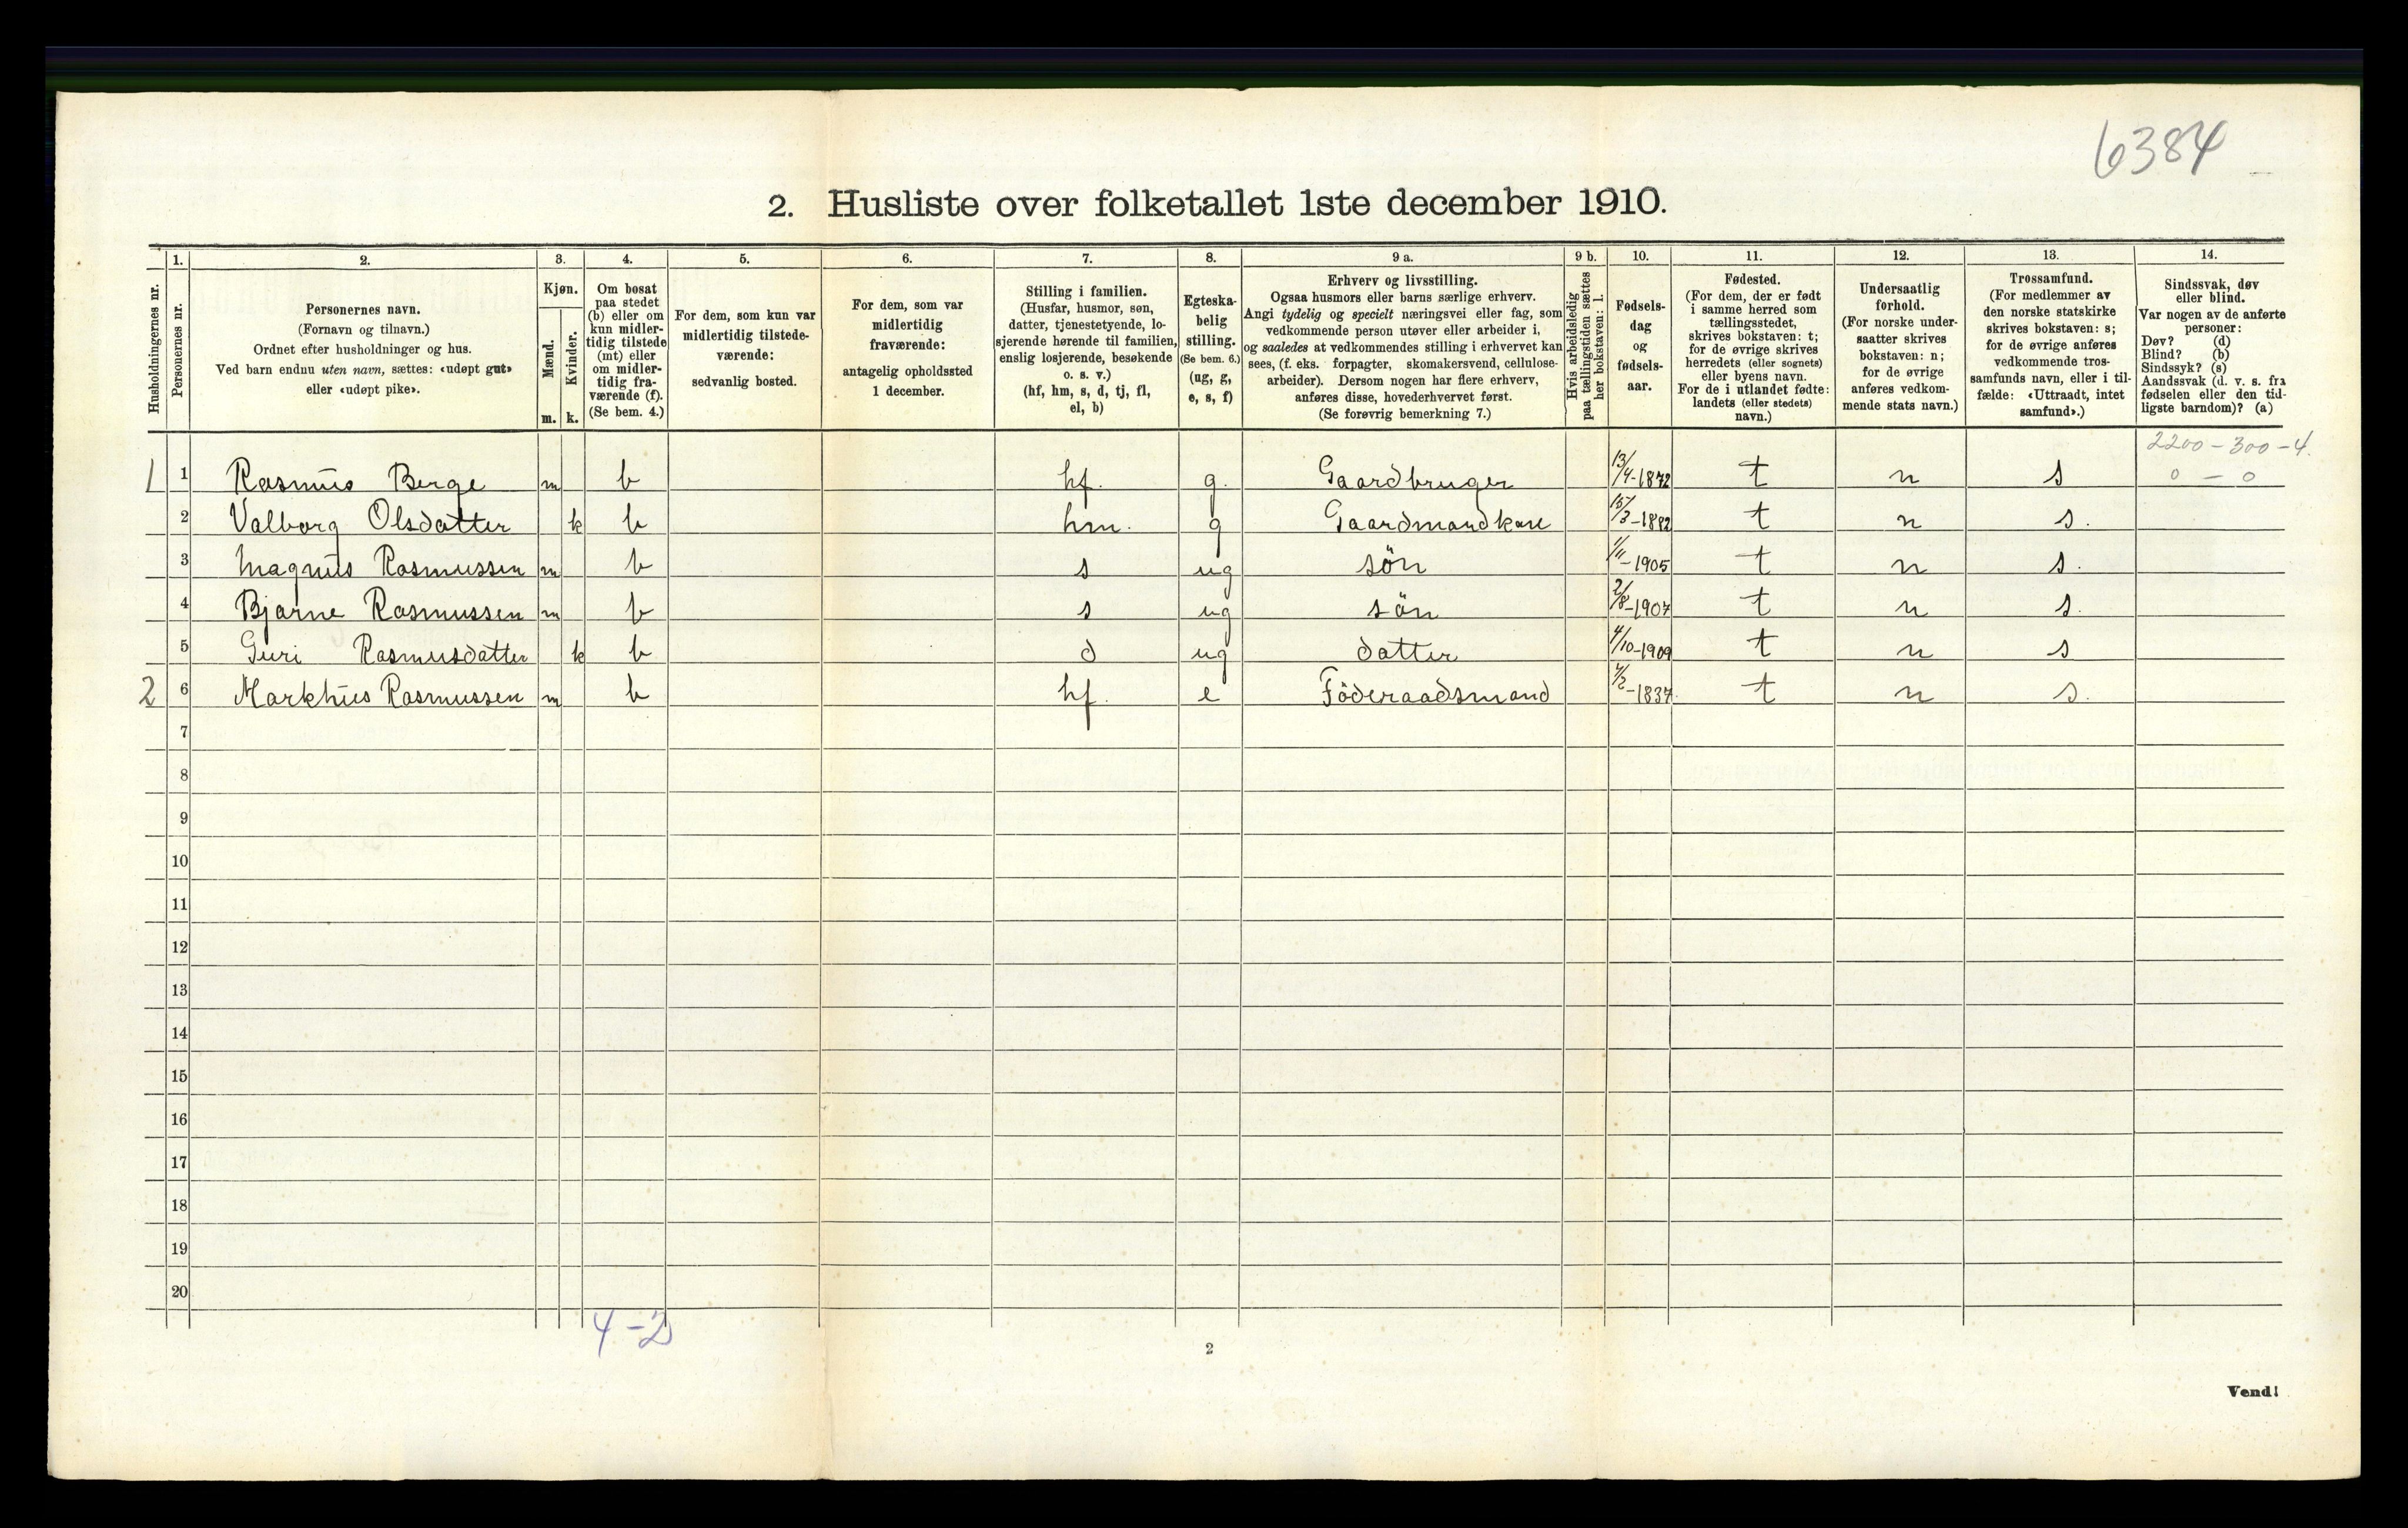 6384
2. Husliste over folketallet 1ste december 1910.
Husholdningernes nr.
1.
Personernes nr.
2.
Personernes navn.
(Fornavn og tilnavn.)
Ordnet efter husholdninger og hus.
Ved barn endnu uten navn, sættes: «udøpt gut»
eller «udøpt pike».
3.
Kjøn.
Mænd.
Kvinder.
m.
k.
4.
Om bosat
paa stedet
(b) eller om
kun midler-
tidig tilstede
(mt) eller
om midler-
tidig fra-
værende (f).
(Se bem. 4.)
5.
For dem, som kun var
midlertidig tilstede-
værende:
sedvanlig bosted.
6.
For dem, som var
midlertidig
fraværende:
antagelig opholdssted
1 december.
7.
Stilling i familien.
(Husfar, husmor, søn,
datter, tjenestetyende, lo-
sjerende hørende til familien,
enslig losjerende, besøkende
o. s. v.)
(hf, hm, s, d, tj, fl,
el, b)
8.
Egteska-
belig
stilling.
(Se bem. 6.)
(ug, g,
e, s, f)
9 a.
Erhverv og livsstilling.
Ogsaa husmors eller barns særlige erhverv.
Angi tydelig og specielt næringsvei eller fag, som
vedkommende person utøver eller arbeider i,
og saaledes at vedkommendes stilling i erhvervet kan
sees, (f. eks. forpagter, skomakersvend, cellulose-
arbeider). Dersom nogen har flere erhverv,
anføres disse, hovederhvervet først.
(Se forøvrig bemerkning 7.)
9 b.
Hvis arbeidsledig
paa tællingstiden sættes
her bokstaven: l.
10.
Fødsels-
dag
og
fødsels-
aar.
11.
Fødested.
(For dem, der er født
i samme herred som
tællingsstedet,
skrives bokstaven: t;
for de øvrige skrives
herredets (eller sognets)
eller byens navn.
For de i utlandet fødte:
landets (eller stedets)
navn.)
12.
Undersaatlig
forhold.
(For norske under-
saatter skrives
bokstaven: n;
for de øvrige
anføres vedkom-
mende stats navn.)
13.
Trossamfund.
(For medlemmer av
den norske statskirke
skrives bokstaven: s;
for de øvrige anføres
vedkommende tros-
samfunds navn, eller i til-
fælde: «Uttraadt, intet
samfund».)
14.
Sindssvak, døv
eller blind.
Var nogen av de anførte
personer:
Døv? (d)
Blind? (b)
Sindssyk? (s)
Aandssvak (d. v. s. fra
fødselen eller den tid-
ligste barndom)? (a)
2200 - 300 - 4.
1 1 Rasmus Berge m b hf. g. Gaardbruger 13/4-1872 t n s 0 - 0
2 Valborg Olsdatter k b hm. g Gaardmandkone 15/3-1882 t n s.
3 Magnus Rasmussen m b s ug sön 1/11-1905 t n s.
4 Bjarne Rasmussen m b s ug sön 2/8-1907 t n s.
5 Guri Rasmusdatter k b d ug datter 4/10-1909 t n s
2 6 Markhus Rasmussen m b hf. e Föderaadsmand -1837 t n s.
7
8
9
10
11
12
13
14
15
16
17
18
19
20
4-2
2
Vend!